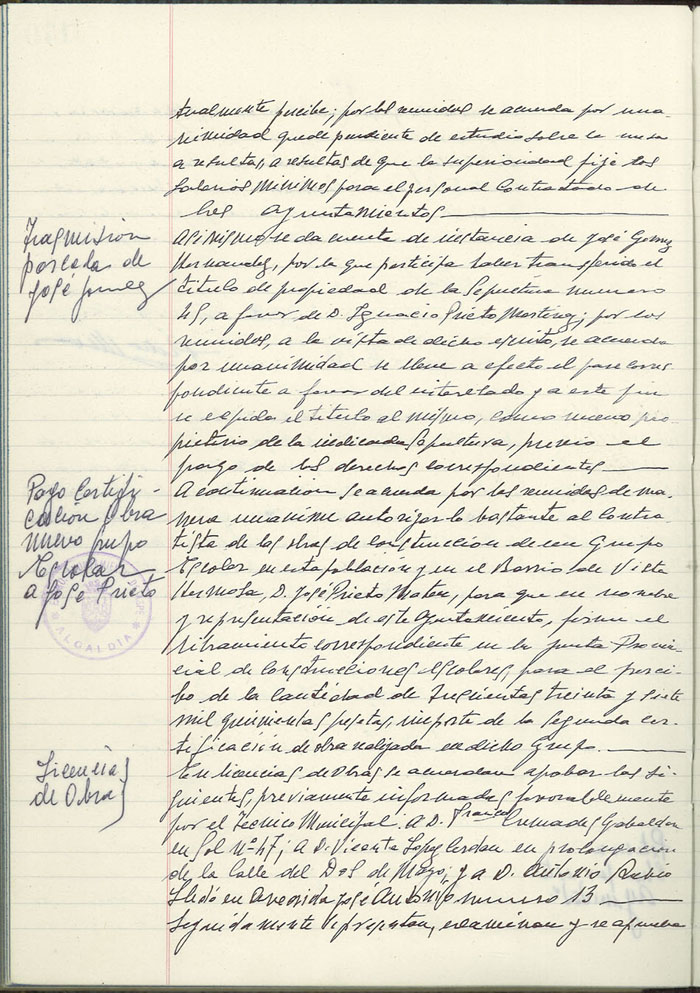 tualmente percibe; por los reunidos se acuerda por una-
nimidad quede pendiente de estudio sobre la mesa
a resultas, a resultas de que la superioridad fije los
salarios minimos para el personal contratado de
los ayuntamientos
Trasmision
parcela de
José Gomez
Asimismo se da cuenta de instancia de José Gomez
Hernandez, por la que participa haber transferido el
titulo de propiedad de la Sepultura numero
45, a favor de D. Ignacio Prieto Martinez; por los
reunidos, a la vista de dicho escrito, se acuerda
por unanimidad se lleve a efecto el pase corres-
pondiente a favor del interesado y a este fin
se expida el titulo al mismo, como nuevo pro-
pietario de la indicada Sepultura, previo el
pago de los derechos correspondientes
Pago Certifi-
cación Obra
nuevo grupo
Escolar
a José Prieto
ALCALDIA
A continuacion se acuerda por los reunidos de ma-
nera unanime autorizar lo bastante al contra-
tista de las obras de construccion de un Grupo
Escolar en esta población y en el Barrio de Vista
Hermosa, D. José Prieto Mateu, para que en nombre
y representación de este Ayuntamiento, firme el
libramiento correspondiente en la Junta Provin-
cial de Construcciones Escolares, para el perci-
bo de la cantidad de trescientas treinta y siete
mil quinientas pesetas, importe de la segunda cer-
tificación de obra realizada en dicho Grupo.
Licencias
de Obras
En licencias de Obras se acuerdan aprobar las si-
guientes, previamente informadas favorablemente
por el Tecnico Municipal. A D. Cremades Gabaldon
en Sol Nº 47; a D. Vicente Lopez Cerdan en prolongacion
de la Calle del Dos de Mayo; y a D. Antonio Rubio
Lledó en Avenida José Antonio numero 13
Seguidamente se presentan, examinan y se aprueba